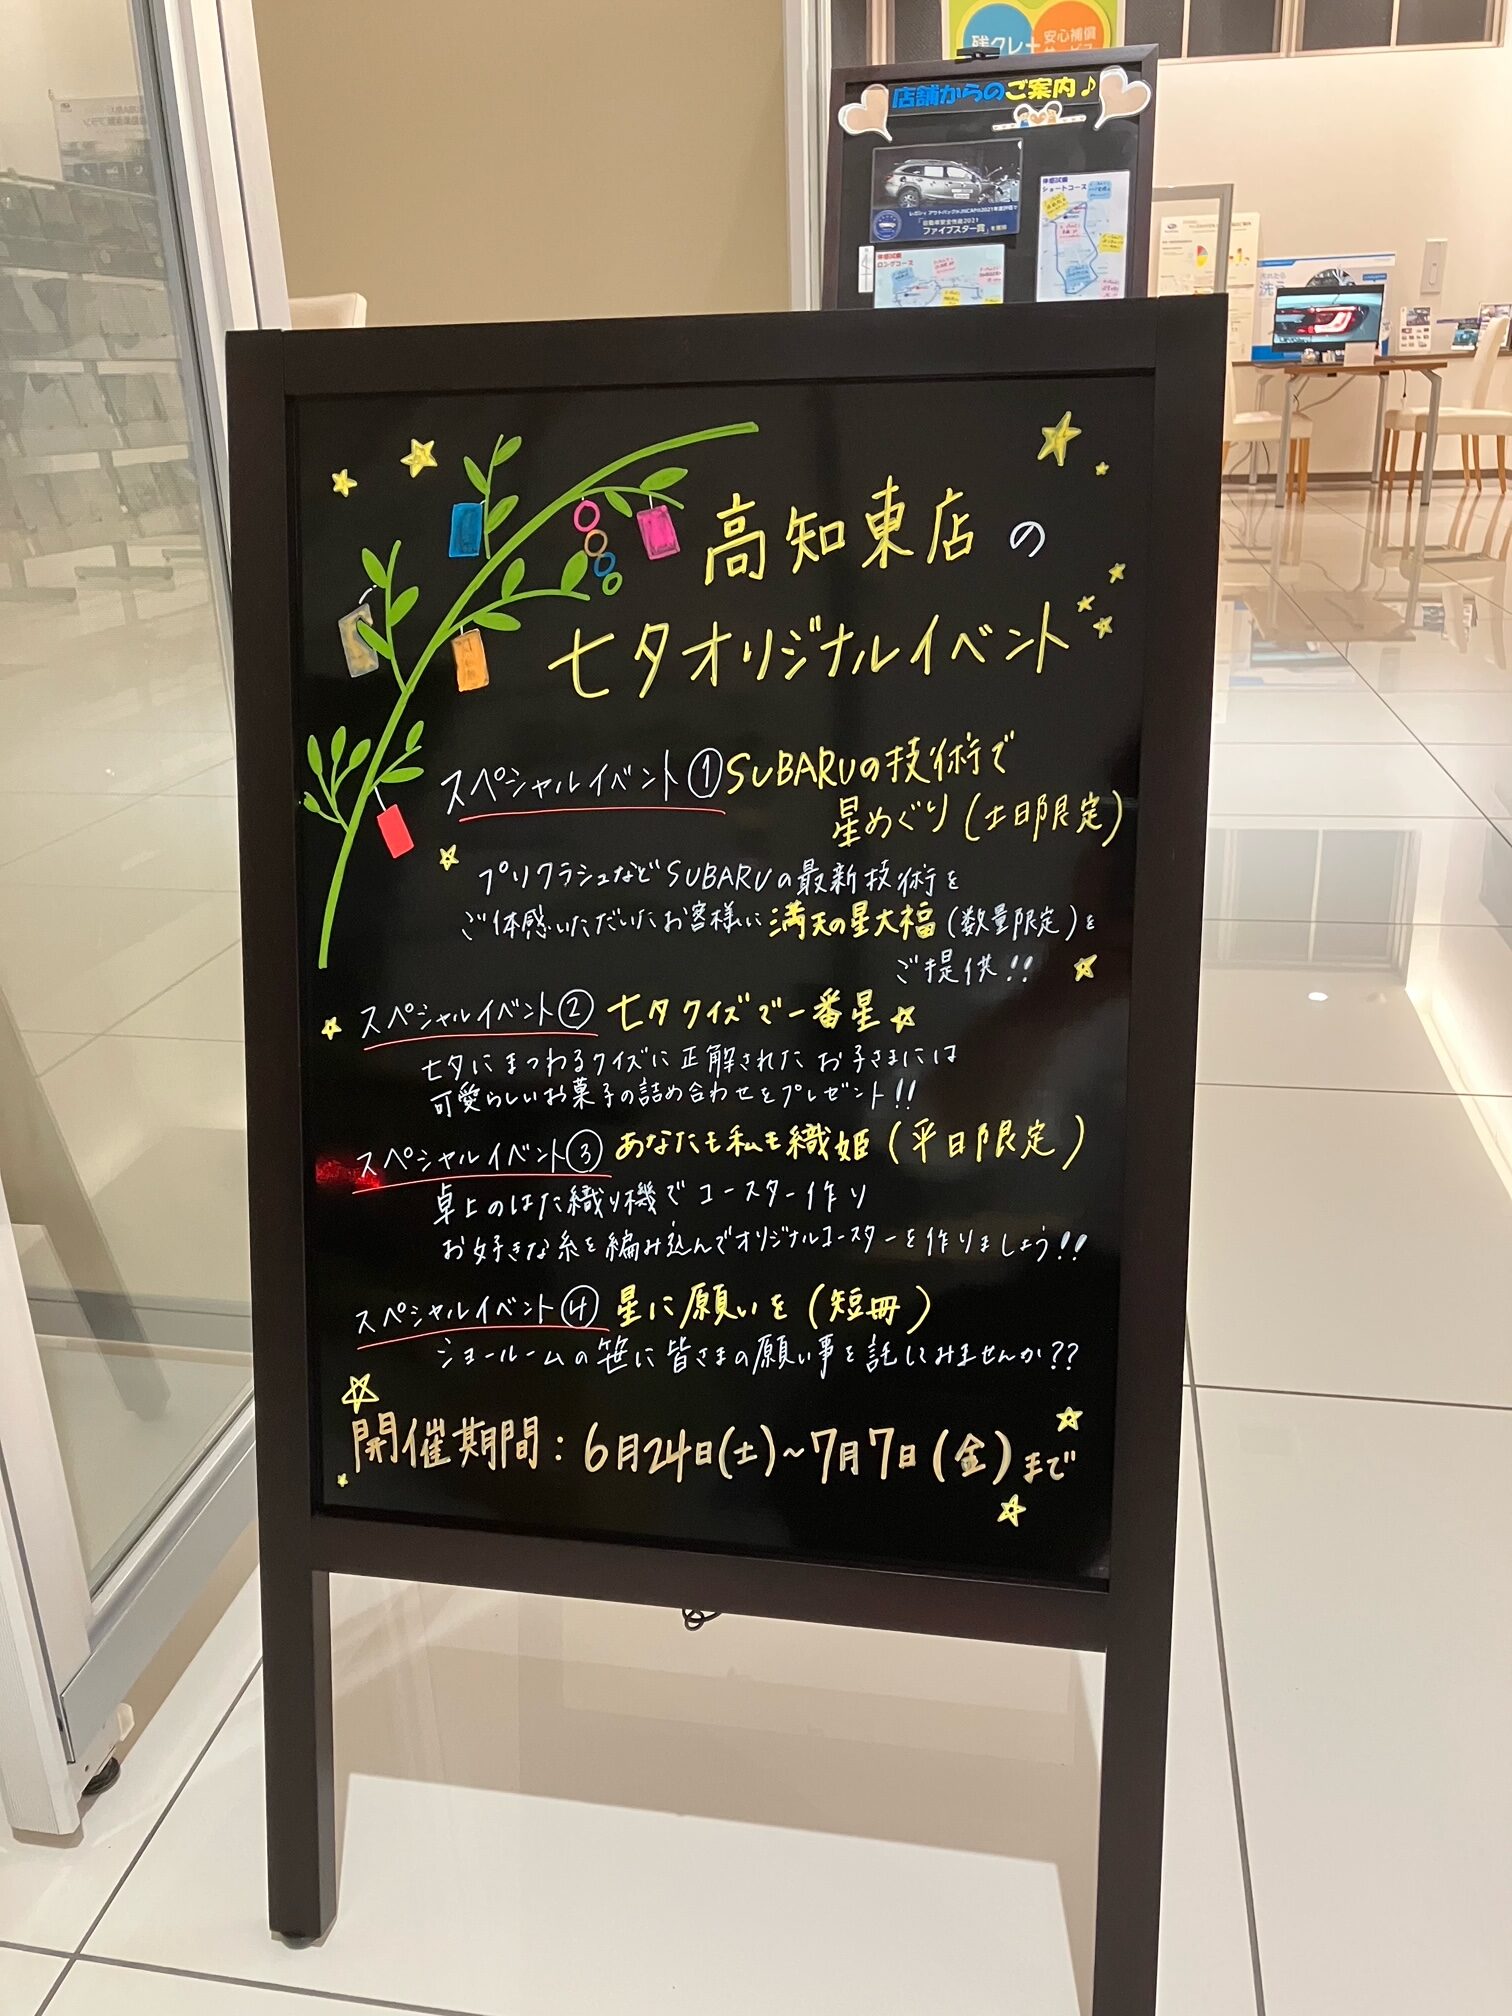 残クレ
安心補償
サービス
店舗からのご案内♪
ファイブスター賞
体感試乗
ショートコース
体感試乗
ロングコース
洗う
高知東店の
七夕オリジナルイベント
スペシャルイベント① SUBARUの技術で
星めぐり(土日限定)
プリクラシュなどSUBARUの最新技術を
ご体感いただいたお客様に満天の星大福(数量限定)を
ご提供!!
スペシャルイベント② 七夕クイズで一番星
七夕にまつわるクイズに正解されたお子さまには
可愛らしいお菓子の詰め合わせをプレゼント!!
スペシャルイベント③ あなたも私も織姫(平日限定)
卓上のはた織り機でコースター作り
お好きな糸を編み込んでオリジナルコースターを作りましょう!!
スペシャルイベント④ 星に願いを(短冊)
ショールームの笹に皆さまの願い事を託してみませんか??
開催期間:6月24日(土)~7月7日(金)まで